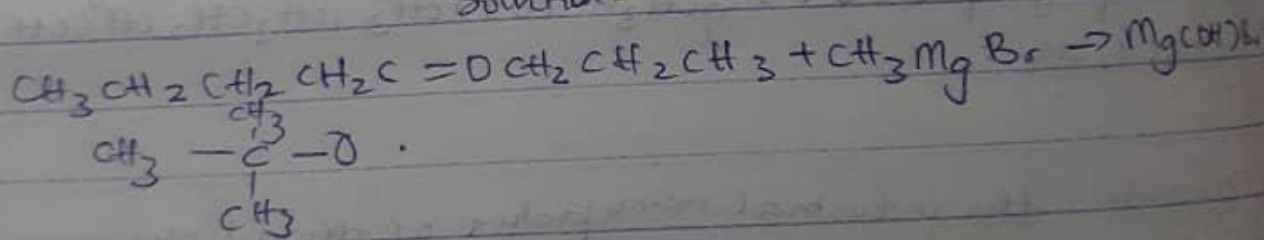 CH3 CH2 CH2 CH2 C = O CH2 CH2 CH3 + CH3 Mg Br → Mg(OH)
CH3
CH3 - C - O .
CH3